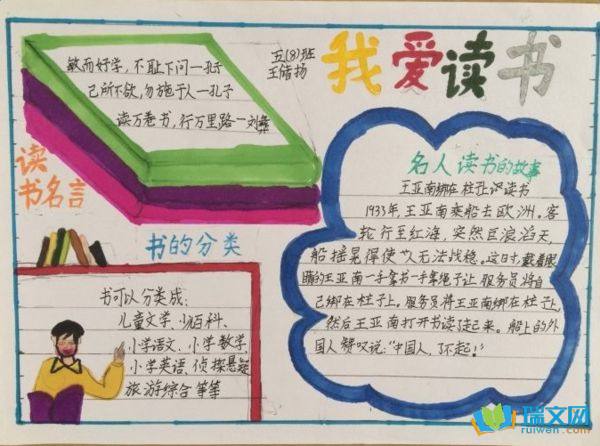 我爱读书
五(8)班
王储扬
敏而好学，不耻下问—孔子
己所不欲，勿施于人—孔子
读万卷书，行万里路—刘彝
读
书名言
书的分类
书可以分类成：
儿童文学、少儿百科、
小学语文、小学数学、
小学英语、侦探悬疑
旅游综合等等
名人读书的故事
王亚南绑在柱子上读书
1933年，王亚南乘船去欧洲。客
轮行至红海，突然巨浪滔天，
船摇晃得使人无法站稳。这时，戴着眼
睛的王亚南一手拿书一手拿绳子让服务员将自
己绑在柱子上。服务员将王亚南绑在柱子上，
然后王亚南打开书读了起来。船上的外
国人赞叹说："中国人，了不起！"
瑞文网
ruiwen.com